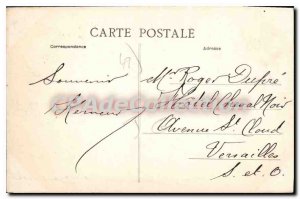 CARTE POSTALE
Correspondance
Adresse
49
Souvenir
Mr Roger Dupré
Hôtel Cheval Noir
Avenue St Cloud
Versailles
S. et O.